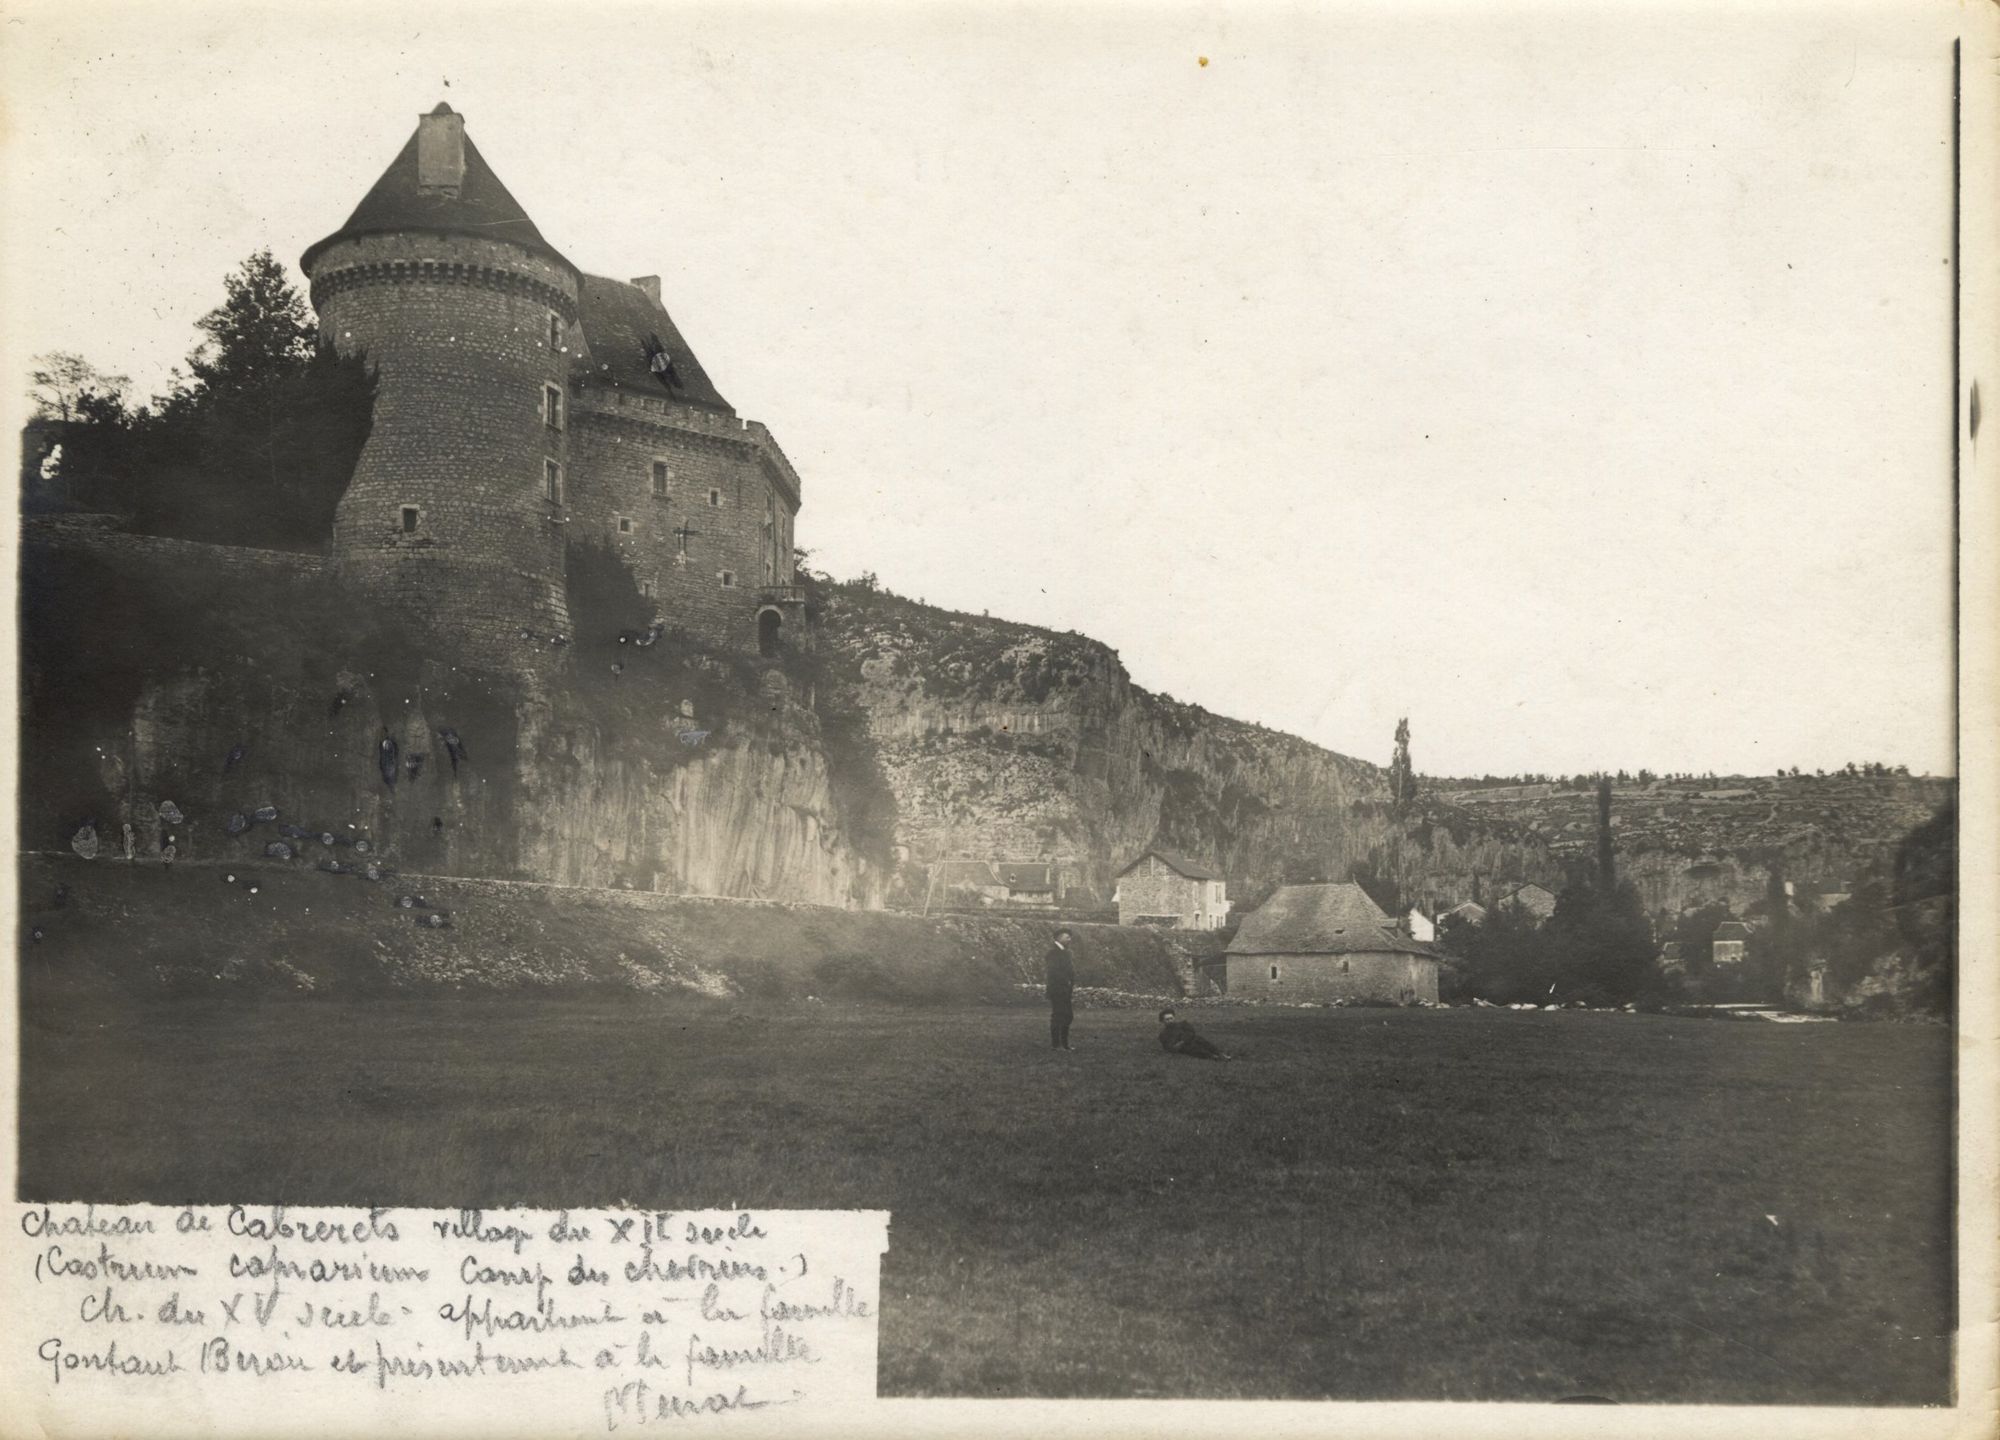 Chateau de Cabrerets village du XIe siècle
(Castrum caprarium Camp des chevriers.)
Ch. du XV siècle - appartient à la famille
Gontaut Biron et présentement à la famille
Murat -